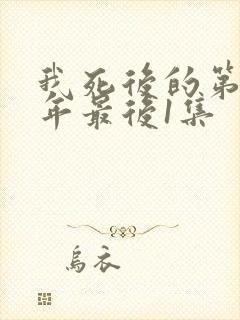 我死後的第
年最後1集
烏衣